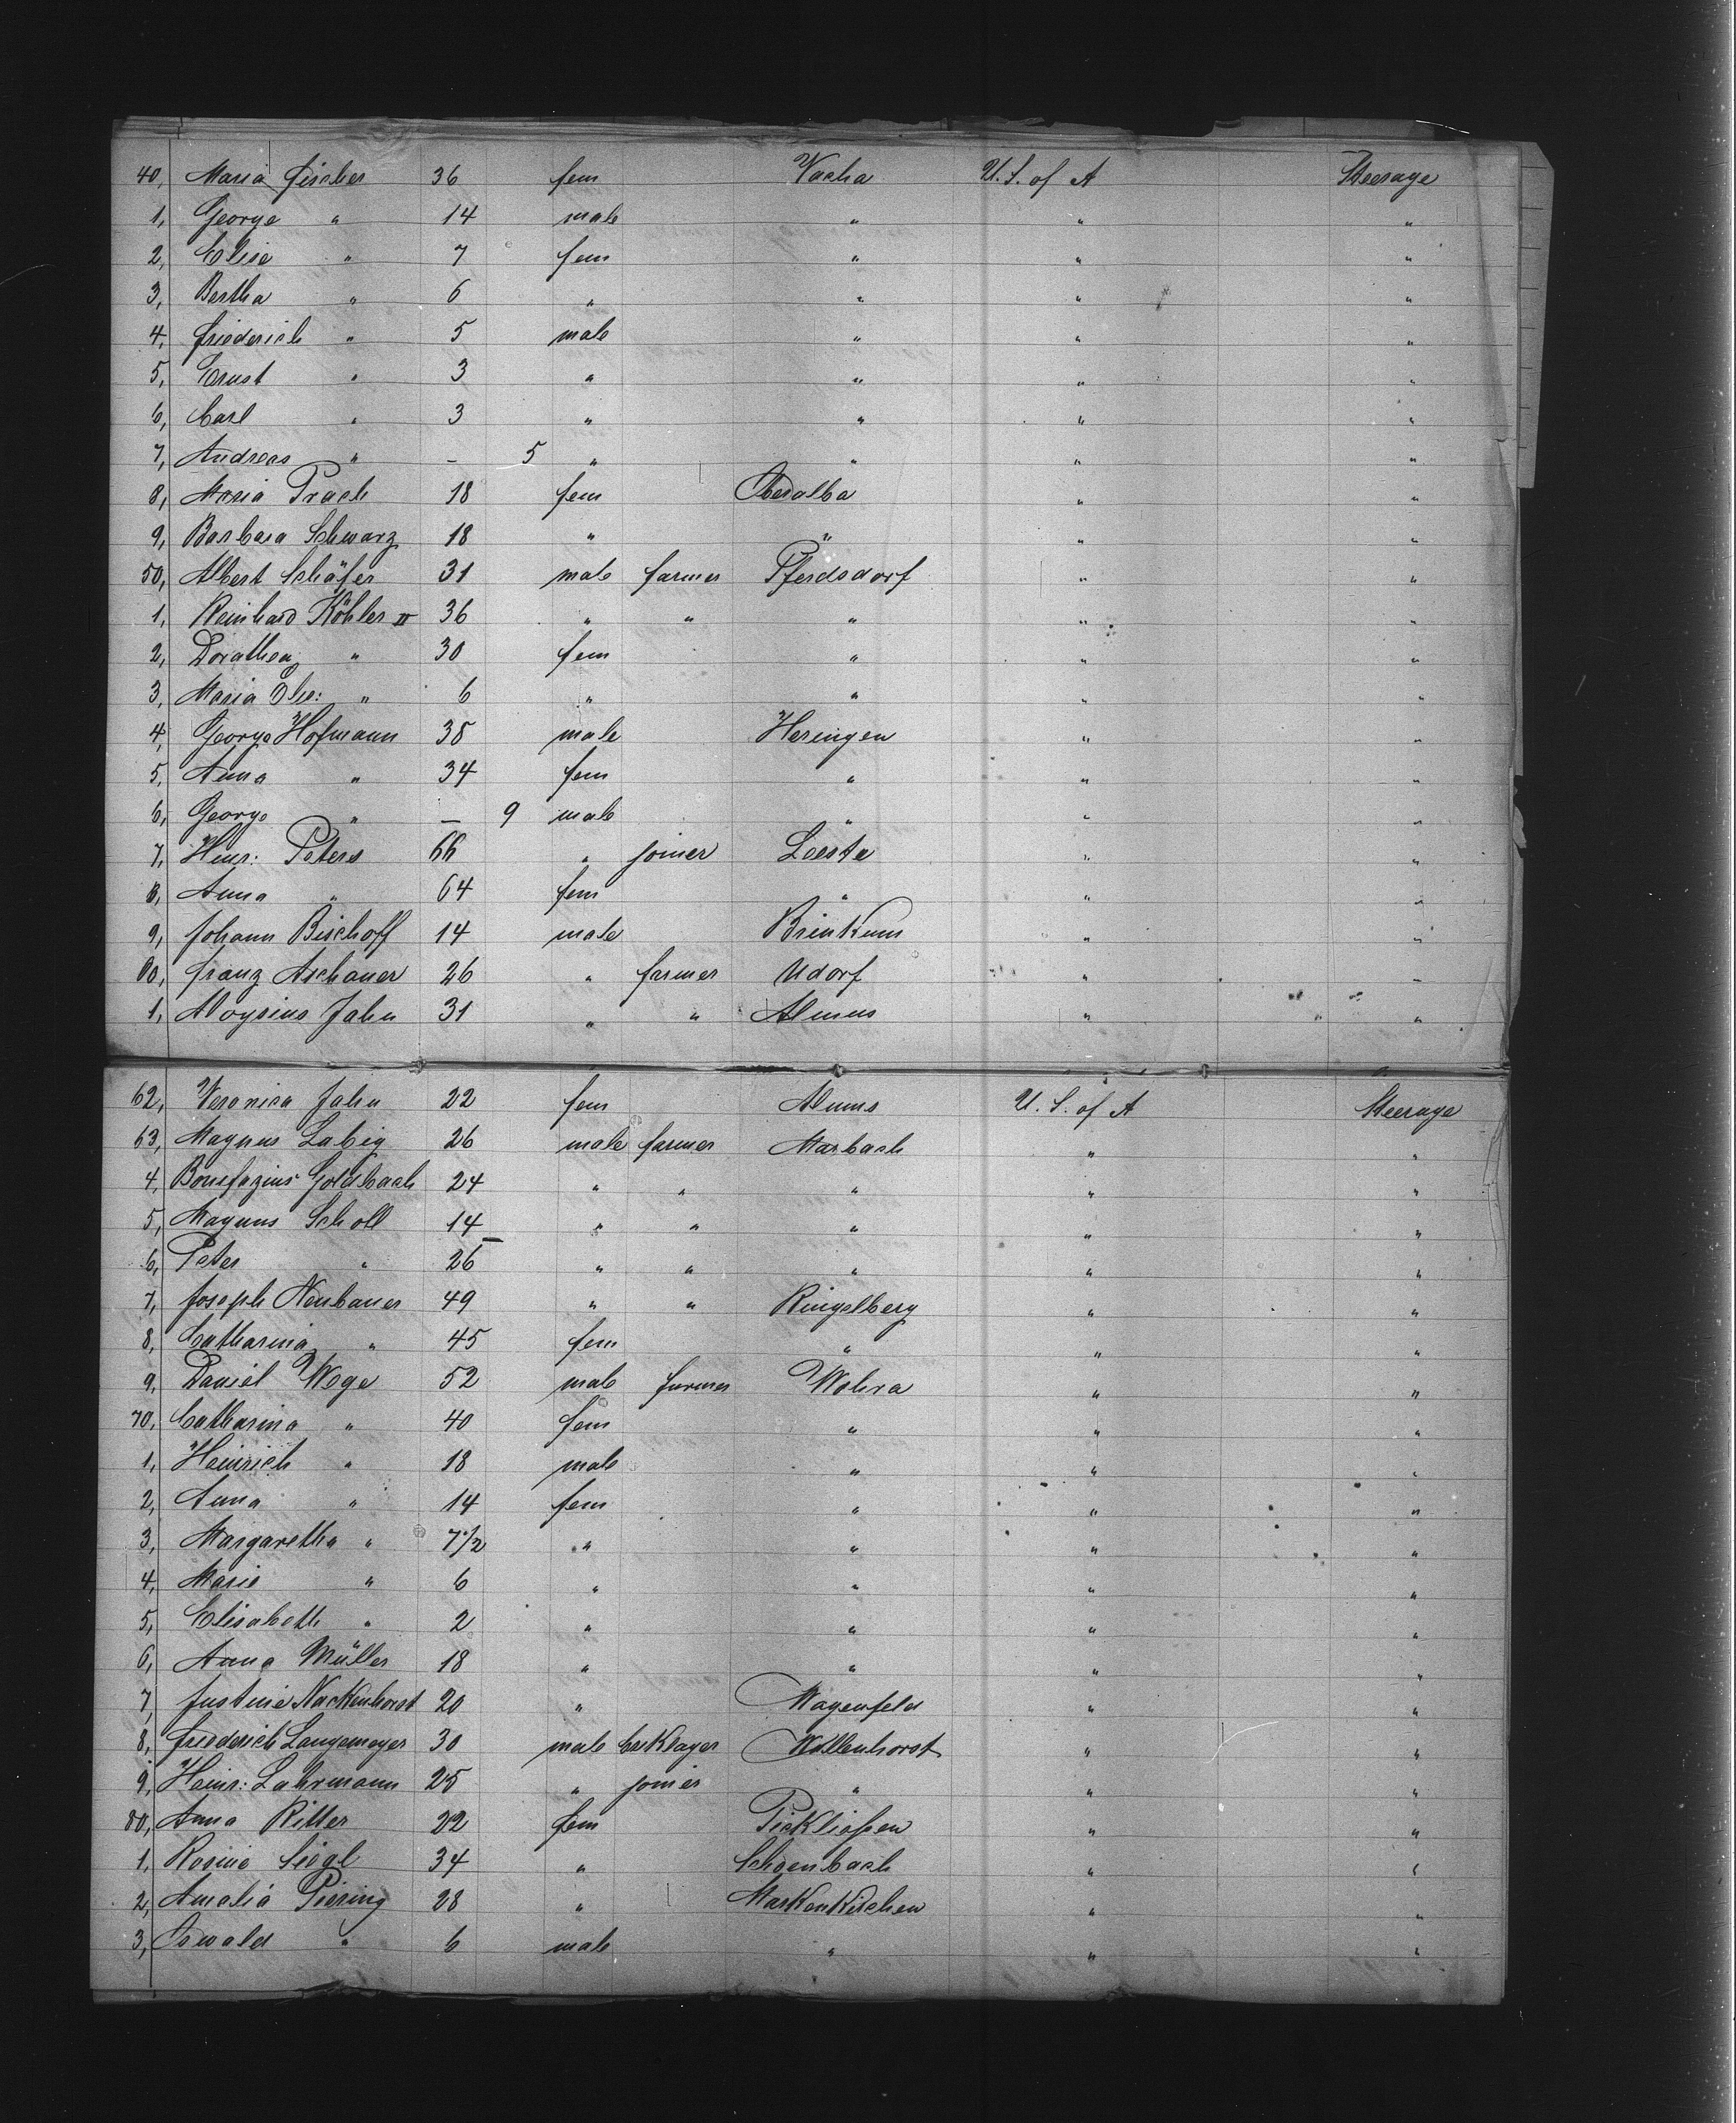 40, Maria Fischer 36 fem Vacha U. S. of A Steerage
1, George " 14 male " " "
2, Elise " 7 fem " " "
3, Bertha " 6 " " " "
4, Friederich " 5 male " " "
5, Ernst " 3 " " " "
6, Carl " 3 " " " "
7, Andreas " – 5 " " " "
8, Maria Prach 18 fem Oberalba " "
9, Barbara Schwarz 18 " " " "
50, Albert Schäfer 31 male farmer Pferdsdorf " "
1, Reinhard Köhler II 36 " " " " "
2, Dorathea " 30 fem " " "
3, Maria Else: " 6 " " " "
4, George Hofmann 38 male Heringen " "
5, Anna " 34 fem " " "
6, George " – 9 male " " "
7, Heinr: Peters 66 " joiner Leeste " "
8, Anna " 64 fem " " "
9, Johann Bischoff 14 male Brinkum " "
60, Franz Aschauer 26 " farmer Udorf " "
1, Aloysius Jahn 31 " " Almus " "
62, Veronica Jahn 22 fem Almus U. S. of A Steerage
63, Magnus Labig 26 male farmer Marbach " "
4, Bonifazius Goldbach 24 " " " " "
5, Magnus Scholl 14 " " " " "
6, Peter " 26 " " " " "
7, Joseph Neubauer 49 " " Ringelberg " "
8, Catharina " 45 fem " " "
9, Daniel Wege 52 male farmer Wohra " "
70, Catharina " 40 fem " " "
1, Heinrich " 18 male " " "
2, Anna " 14 fem " " "
3, Margaretha " 7 1/2 " " " "
4, Marie " 6 " " " "
5, Elisabeth " 2 " " " "
6, Anna Müller 18 " " " "
7, Justine Nackenhorst 20 " Wagenfeld " "
8, Friederich Langemeyer 30 male Wollenhorst " "
9, Heinr: Lahrmann 25 " joiner " " "
80, Anna Ritter 22 fem Pickließen " "
1, Rosine Siegl 34 " Schoenbach " "
2, Amalia Piering 28 " Markenkirchen " "
3, Oswald " 6 male " " "